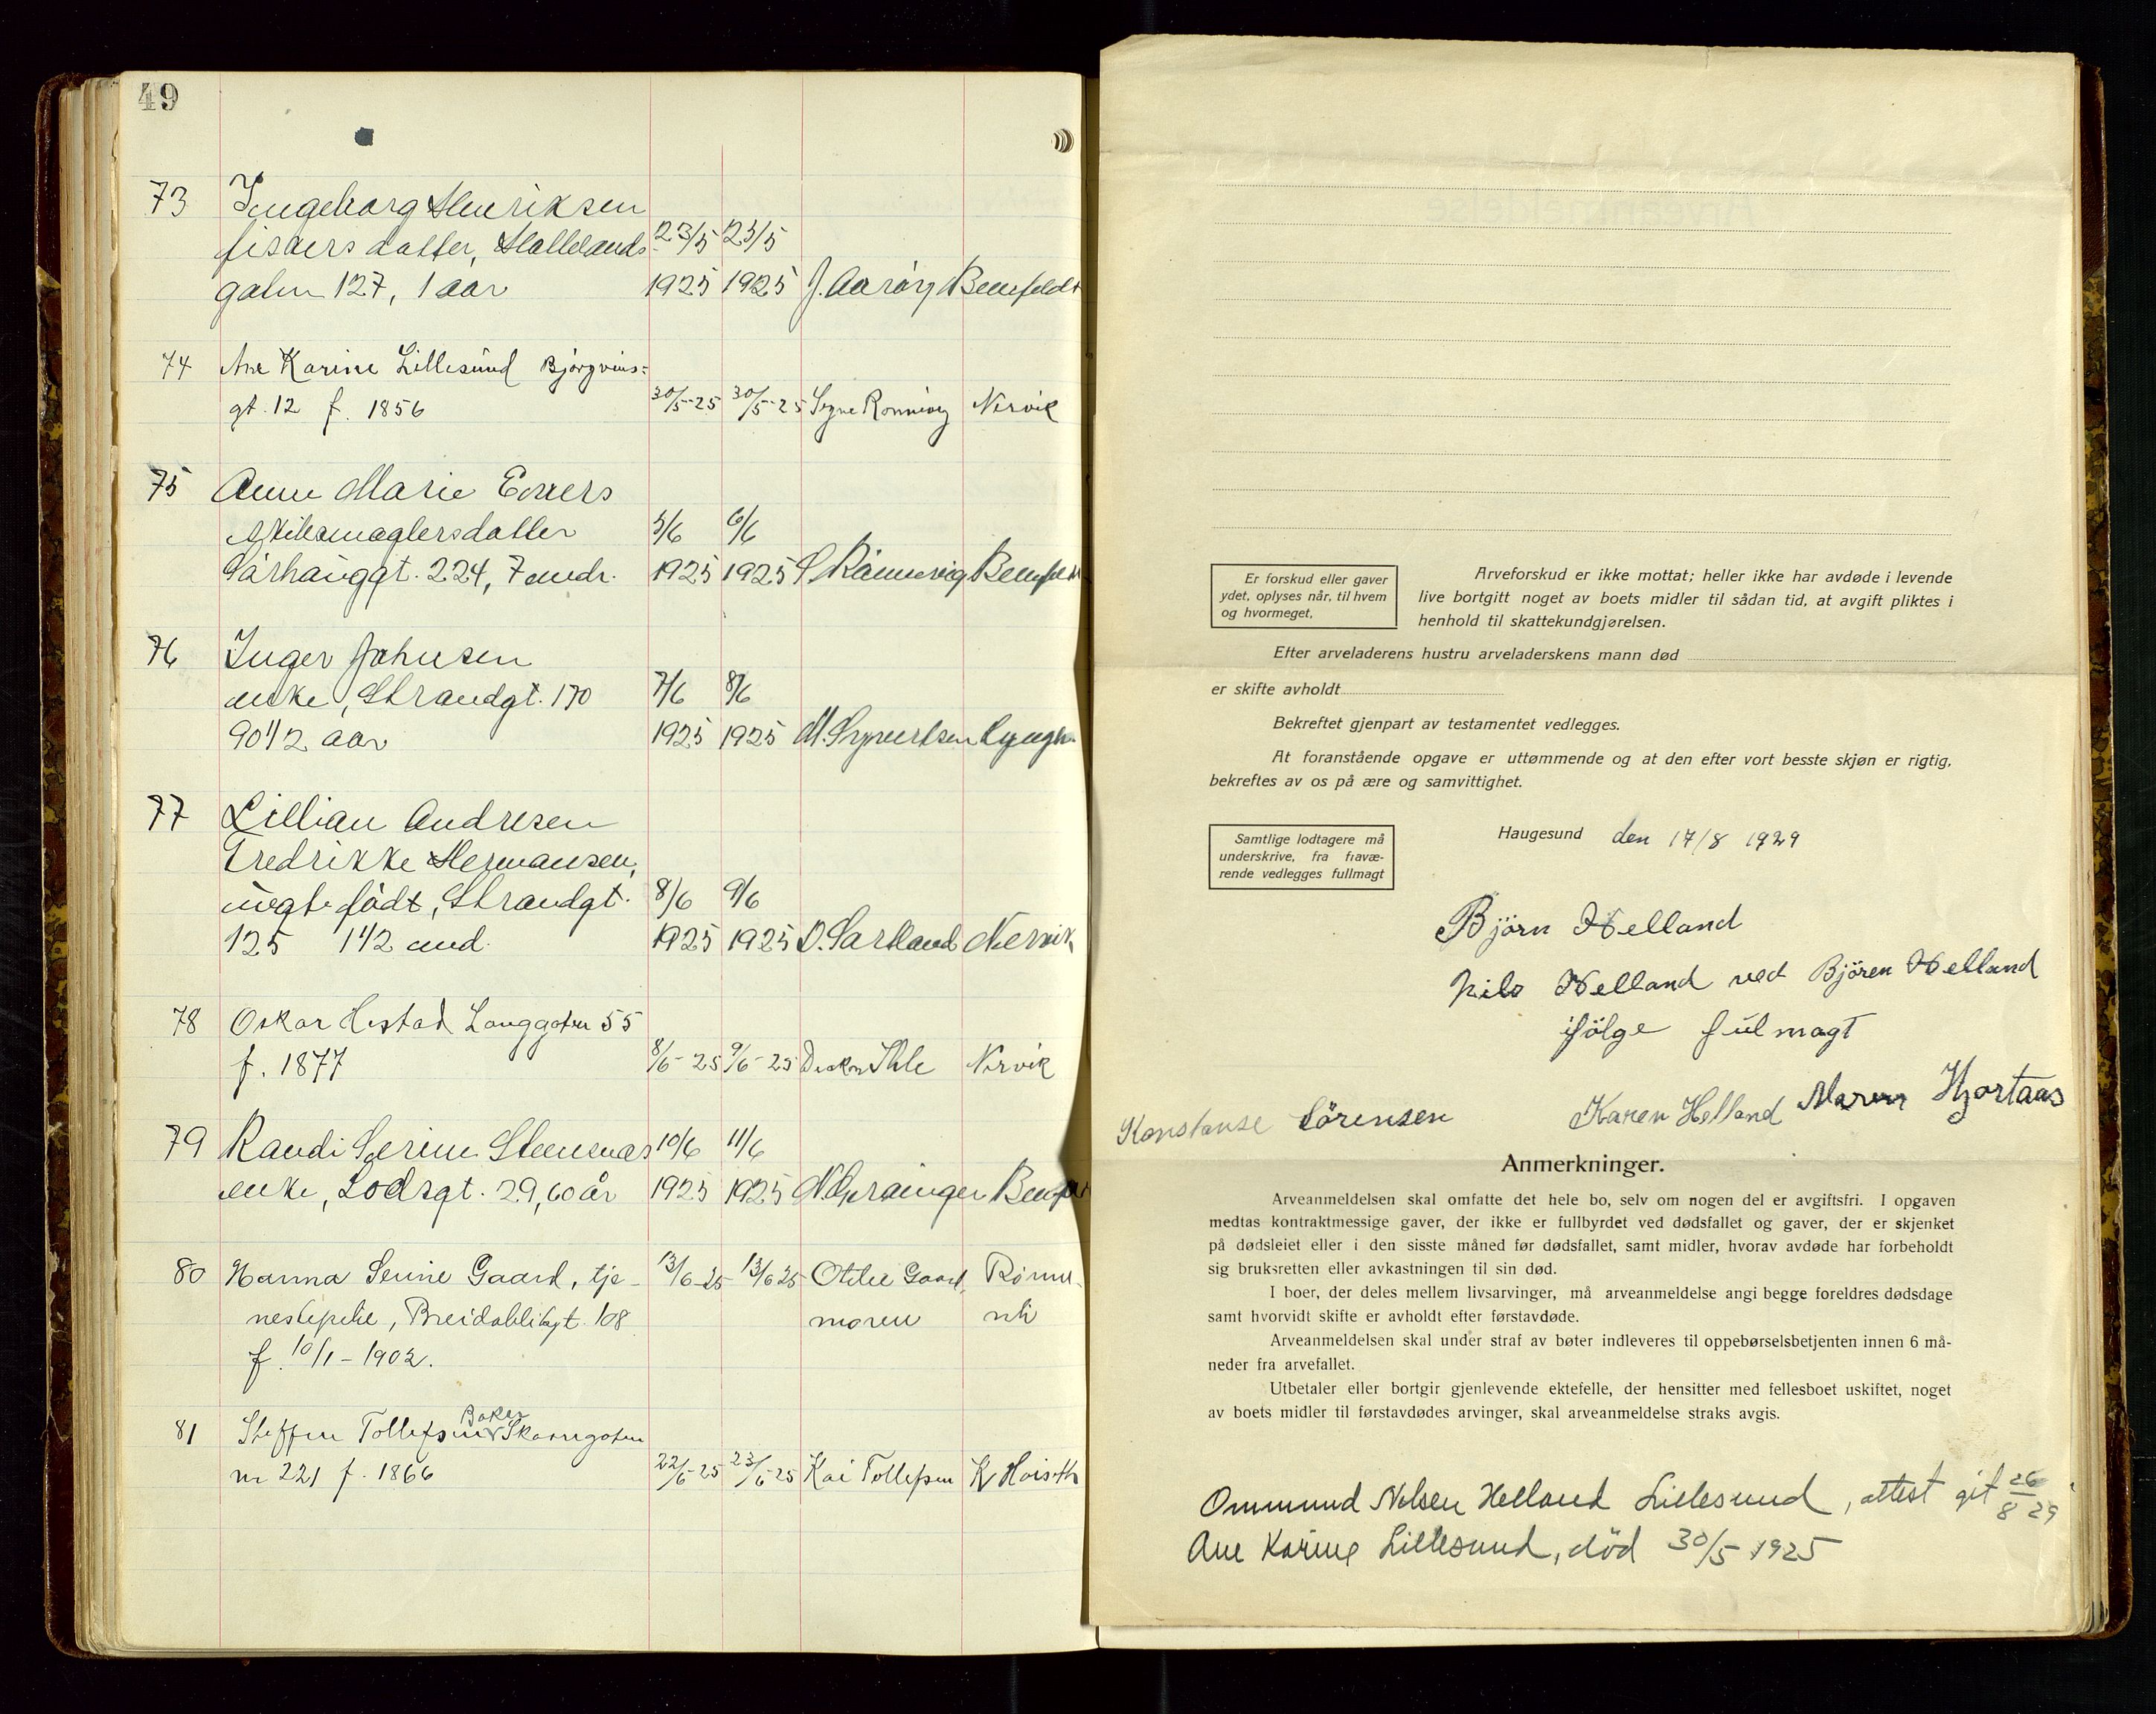 49
73 Ingeborg Henriksen
fiskers datter, Hallelands- 23/5 23/5
gaten 127, 1 aar 1925 1925 J. Aarøy
74 Ane Karine Lillesund Bjørgvins=
gt. 12 f. 1856 30/5-25 30/5-25 Signe Rønnevig Nervik
75 Anne Marie Evers
skibsmæglersdatter 5/6 6/6
Sørhauggt. 224, 7 mndr. 1925 1925 S. Rönnevig
76 Inger Johnsen
enke, Strandgt. 170 7/6 8/6
90 1/2 aar 1925 1925 M. Syvertsen
77 Lillian Andresen
Fredrikke Hermansen,
uegte født, Strandgt. 8/6 9/6
125 1 1/2 mnd. 1925 1925 O. Sartland Nervik
78 Oskar Langgaten 55
f. 1877 8/6-25 9/6-25 Ihle Nervik
79 Randi Serine Steensnæs 10/6 11/6
enke, Lodsgt. 29, 60 år 1925 1925
80 Hanna Serine Gaard, tje- 13/6-25 13/6 25 Otilie Gaard,
nestepike, Breidablikgt. 108 moren
f. 10/1-1902.
81 Steffen Tollefsen Baker Skaaregaten
nr 221 f. 1866 22/6-25 23/6-25 Kai Tollefsen
Er forskud eller gaver
ydet, oplyses når, til hvem
og hvormeget.
Arveforskud er ikke mottat; heller ikke har avdøde i levende
live bortgitt noget av boets midler til sådan tid, at avgift pliktes i
henhold til skattekundgjørelsen.
Efter arveladerens hustru arveladerskens mann død
er skifte avholdt
Bekreftet gjenpart av testamentet vedlegges.
At foranstående opgave er uttømmende og at den efter vort besste skjøn er rigtig,
bekreftes av os på ære og samvittighet.
Samtlige lodtagere må
underskrive, fra fravæ-
rende vedlegges fullmagt
Haugesund den 17/8 1929
Björn Helland
Nils Helland ved Björen Helland
ifölge fulmagt
Konstanse Sörensen Karen Helland Maren Hjortaas
Anmerkninger.
Arveanmeldelsen skal omfatte det hele bo, selv om nogen del er avgiftsfri. I opgaven
medtas kontraktmessige gaver, der ikke er fullbyrdet ved dødsfallet og gaver, der er skjenket
på dødsleiet eller i den sisste måned før dødsfallet, samt midler, hvorav avdøde har forbeholdt
sig bruksretten eller avkastningen til sin død.
I boer, der deles mellem livsarvinger, må arveanmeldelse angi begge foreldres dødsdage
samt hvorvidt skifte er avholdt efter førstavdøde.
Arveanmeldelsen skal under straf av bøter indleveres til oppebørselsbetjenten innen 6 må-
neder fra arvefallet.
Utbetaler eller bortgir gjenlevende ektefelle, der hensitter med fellesboet uskiftet, noget
av boets midler til førstavdødes arvinger, skal arveanmeldelse straks avgis.
Ommund Nilsen Helland Lillesund, attest git 26/8 29
Ane Karine Lillesund, död 30/5 1925